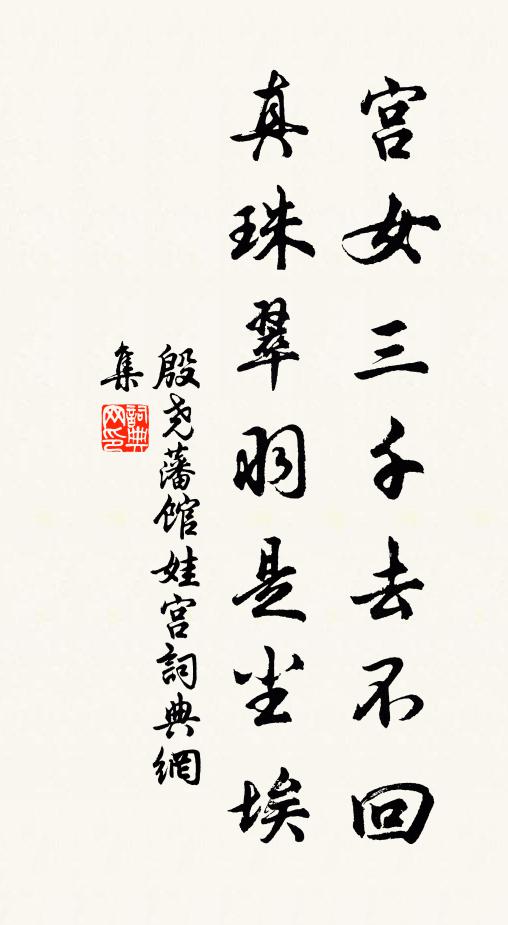 宫女三千去不回
真珠翠羽是尘埃
殷尧藩馆娃宫詞典網
集
詞典网印